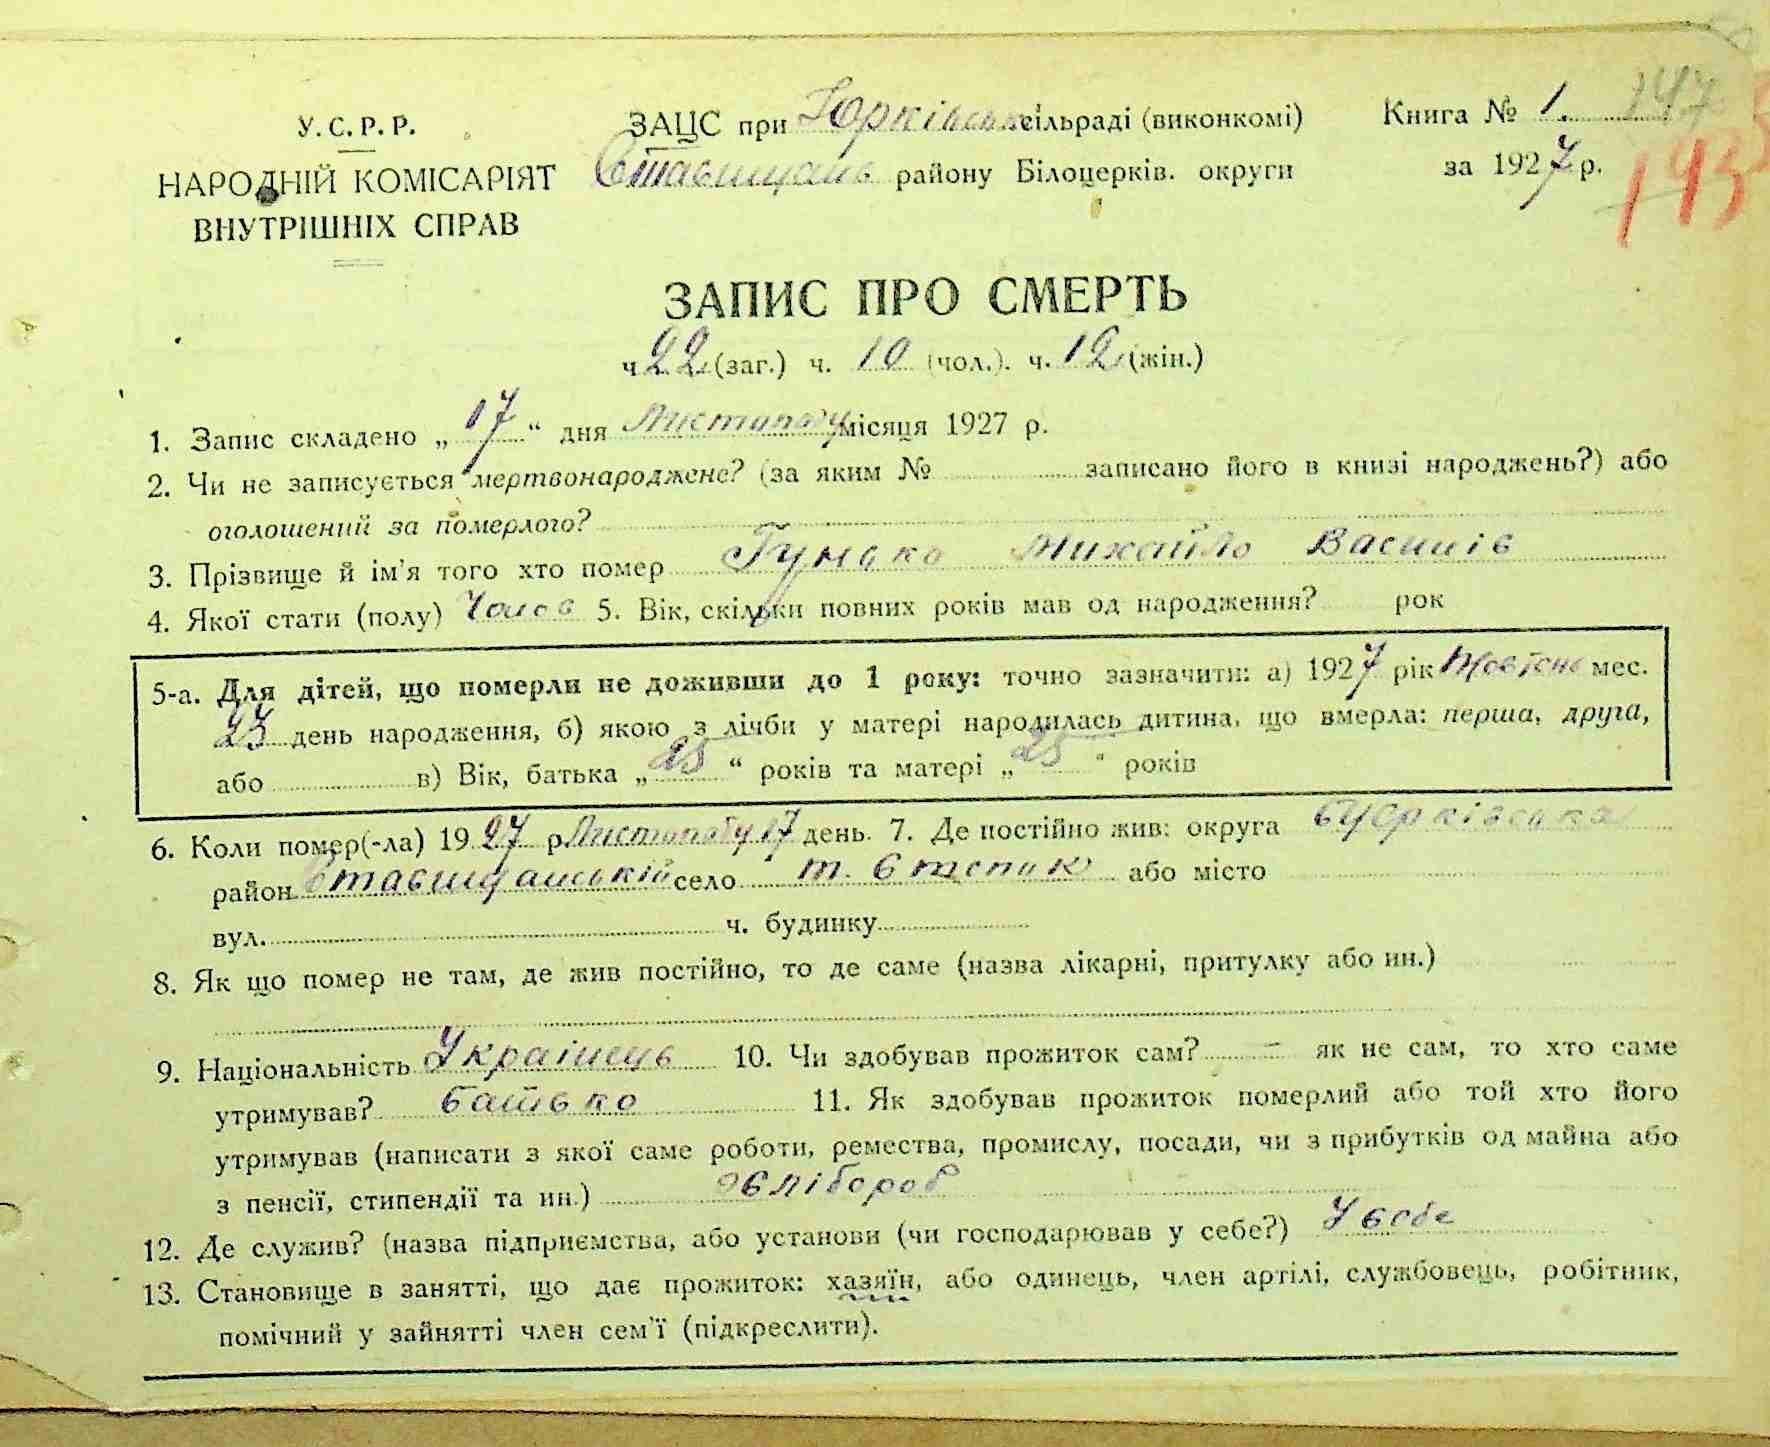 У.С.Р.Р.
НАРОДНІЙ КОМІСАРІЯТ
ВНУТРІШНІХ СПРАВ
ЗАЦС при Юрківськ. сільраді (виконкомі)
Ставищань району Білоцерків. округи
Книга № 1. 147
за 1927 р.
ЗАПИС ПРО СМЕРТЬ
ч 22 (заг.) ч. 10 (чол.). ч. 12 (жін.)
1. Запис складено „ 17 “ дня Листопаду місяця 1927 р.
2. Чи не записується мертвонароджене? (за яким № записано його в книзі народжень?) або
оголошений за померлого?
3. Прізвище й ім'я того хто помер Гунько Михайло Василів
4. Якої стати (полу) Чолов 5. Вік, скільки повних років мав од народження? рок
5-а. Для дітей, що померли не доживши до 1 року: точно зазначити: а) 1927 рік Жовтень мес.
23 день народження, б) якою з лічби у матері народилась дитина, що вмерла: перша, друга,
або в) Вік, батька „ 25 “ років та матері „ 25 “ років
6. Коли помер(-ла) 1927 р. Листопаду 17 день. 7. Де постійно жив: округа
район Ставищанській село або місто
вул. ч. будинку
8. Як що помер не там, де жив постійно, то де саме (назва лікарні, притулку або ин.)
9. Національність Українець 10. Чи здобував прожиток сам? – як не сам, то хто саме
утримував? батько 11. Як здобував прожиток померлий або той хто його
утримував (написати з якої саме роботи, ремества, промислу, посади, чи з прибутків од майна або
з пенсії, стипендії та ин.) хлібороб
12. Де служив? (назва підприємства, або установи (чи господарював у себе?) У себе
13. Становище в занятті, що дає прожиток: хазяїн, або одинець, член артілі, службовець, робітник,
помічний у зайнятті член сем'ї (підкреслити).